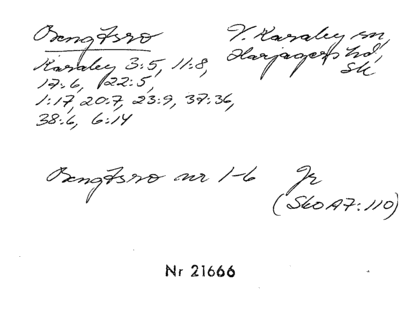 Bengtsro
V. Karaby sn,
Harjagers hd,
Sk
Karaby 3:5, 11:8,
17:6, 22:5,
1:17, 20:7, 23:9, 37:36,
38:6, 6:14
Bengtsro nr 1-6 Jr
(SkO A7:110)
Nr 21666